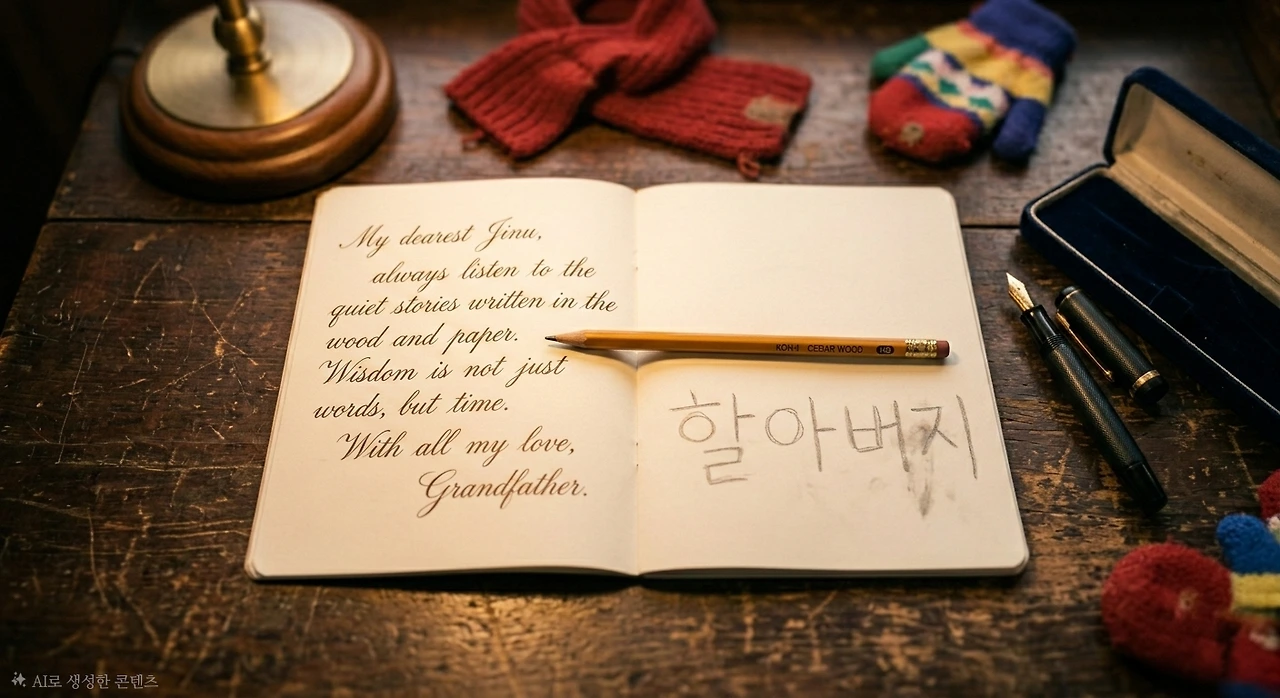 My dearest Jinu,
always listen to the
quiet stories written in the
wood and paper.
Wisdom is not just
words, but time.
With all my love,
Grandfather.
KOH-I CEBAR WOOD HB
할아버지
AI로 생성한 콘텐츠